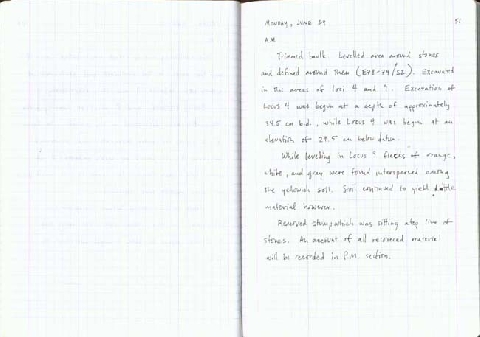 Monday, June 29 51
A.M.
Trimmed baulk. Levelled area around stones
and defined around them (E78-79/S2). Excavated
in the areas of Loci 4 and. Excavation of
Locus 4 was begun at a depth of approximately
34.5 cm b.d., while Locus 9 was begun at an
elevation of 29.5 cm below datum.
While levelling in Locus pieces of orange,
white, and gray were found interspersed among
the yellowish soil. Soil continued to yield
material however.
Removed stump which was sitting atop line of
stones. An amount of all removed material
will be recorded in P.M. section.